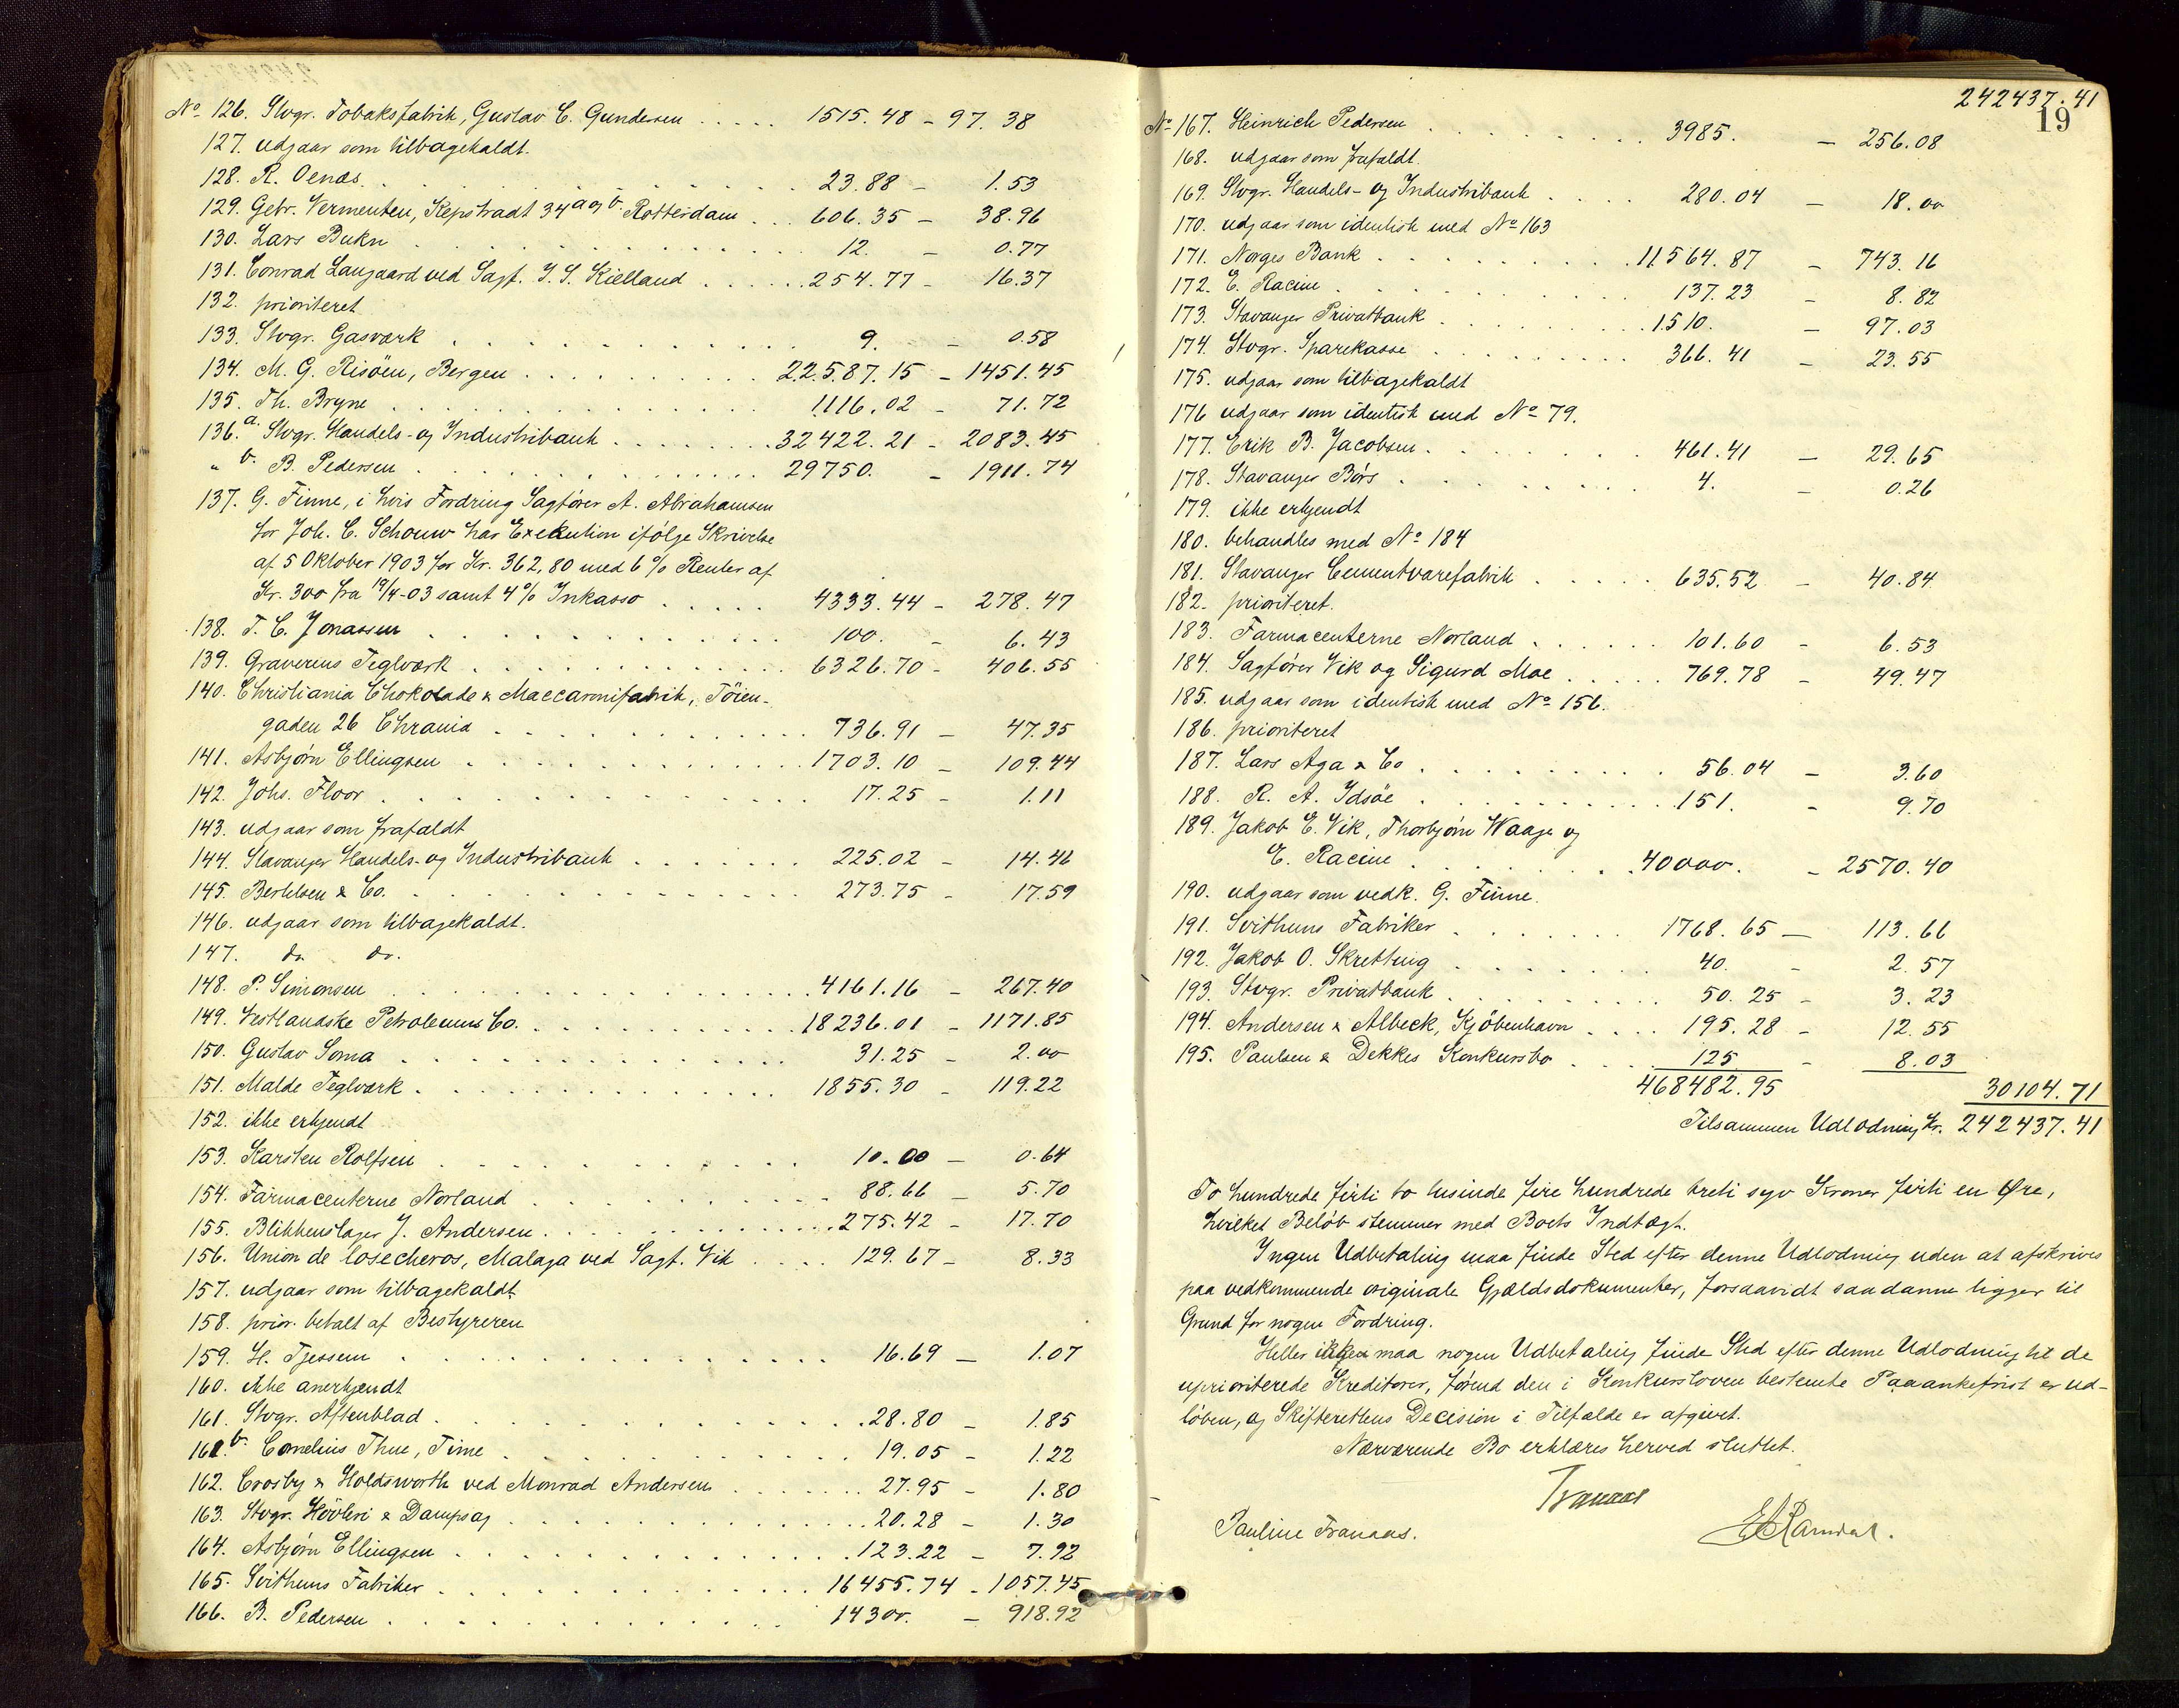 No 126. Stvgr. Tobaksfabrik, Gustav C. Gundersen . . . . . 1515.48 - 97.38
127. udgaar som tilbagekaldt.
128. R. Oenæs . . . . . 23.88 - 1.53
129. Gebr. Vermeuten, Kepstradt 34 a og b. Rotterdam . . . 606.35 - 38.96
130. Lars Bukn . . . . . 12. - 0.77
131. Conrad Langaard ved Sagf. J. S. Kielland . . . . . 254.77 - 16.37
132. prioriteret
133. Stvgr. Gasværk . . . . . 9. - 0.58
134. M. G. Risöen, Bergen . . . . . 22587.15 - 1451.45
135. Th. Bryne . . . . . 1116.02 - 71.72
136. a. Stvgr. Handels- og Industribank . . . . . 32422.21 - 2083.45
" b. B. Pedersen . . . . . 29750. - 1911.74
137. G. Finne, i hvis Fordring Sagfører A. Abrahamsen
for Joh. C. Schouw har Exekution ifölge Skrivelse
af 5 Oktober 1903 for Kr. 362,80 med 6 % Renter af
Kr. 300 fra 19/4-03 samt 4 % Inkasso . . . . . 4333.44 - 278.47
138. T. C. Jonassen . . . . . 100. - 6.43
139. Graverens Teglværk . . . . . 6326.70 - 406.55
140. Christiania Chokolade & Maccaronifabrik, Töien-
gaden 26 Chrania . . . . . 736.91 - 47.35
141. Asbjørn Ellingsen . . . . . 1703.10 - 109.44
142. Johs. Floor . . . . . 17.25 - 1.11
143. udgaar som frafaldt
144. Stavanger Handels- og Industribank . . . . . 225.02 - 14.46
145. Berlelsen & Co. . . . . . 273.75 - 17.59
146. udgaar som tilbagekaldt.
147. do do.
148. P. Simonsen . . . . . 4161.16 - 267.40
149. Vestlandske Petroleums Co. . . . . . 18236.01 - 1171.85
150. Gustav Soma . . . . . 31.25 - 2.00
151. Malde Teglværk . . . . . 1855.30 - 119.22
152. ikke erkjendt
153. Karsten Rolfsen . . . . . 10.00 - 0.64
154. Farmaceuterne Norland . . . . . 88.66 - 5.70
155. Blikkenslager J. Andersen . . . . . 275.42 - 17.70
156. Union de losecheros, Malaga ved Sagf. Vik . . . . 129.67 - 8.33
157. udgaar som tilbagekaldt
158. prior. betalt af Bestyreren
159. H. Tjessem . . . . . 16.69 - 1.07
160. ikke anerkjendt
161. Stvgr. Aftenblad . . . . . 28.80 - 1.85
161 b. Cornelius Thue, Time . . . . . 19.05 - 1.22
162. Crosby & Holdsworth ved Monrad Andersen . . . . . 27.95 - 1.80
163. Stvgr. Hövleri & Dampsag . . . . . 20.28 - 1.30
164. Asbjørn Ellingsen . . . . . 123.22 - 7.92
165. Svithuns Fabriker . . . . . 16455.74 - 1057.45
166. B. Pedersen . . . . . 14300. - 918.92
242437.41
19
No 167. Heinrich Pedersen . . . . . 3985. - 256.08
168. udgaar som frafaldt.
169. Stvgr. Handels- og Industribank . . . . 280.04 - 18.00
170. udgaar som identisk med No 163
171. Norges Bank . . . . . 11564.87 - 743.16
172. E. Racine . . . . . 137.23 - 8.82
173. Stavanger Privatbank . . . . . 1510. - 97.03
174. Stvgr. Sparekasse . . . . . 366.41 - 23.55
175. udgaar som tilbagekaldt
176 udgaar som identisk med No 79.
177. Erik B. Jacobsen . . . . . 461.41 - 29.65
178. Stavanger Börs . . . . . 4. - 0.26
179. ikke erkjendt
180. behandles med No 184
181. Stavanger Cementvarefabrik . . . . . 635.52 - 40.84
182. prioriteret.
183. Farmaceuterne Norland . . . . . 101.60 - 6.53
184. Sagfører Vik og Sigurd Moe . . . . . 769.78 - 49.47
185. udgaar som identisk med No 156.
186. prioriteret
187. Lars Aga & Co . . . . . 56.04 - 3.60
188. R. A. Idsöe . . . . . 151. - 9.70
189. Jakob E. Vik, Thorbjørn Waage og
E. Racine . . . . . 40000. - 2570.40
190. udgaar som vedk. G. Finne.
191. Svithuns Fabriker . . . . . 1768.65 - 113.66
192. Jakob O. Skretting . . . . . 40. - 2.57
193. Stvgr. Privatbank . . . . . 50.25 - 3.23
194. Andersen & Albeck, Kjöbenhavn . . . . 195.28 - 12.55
195. Paulsen & Dekkes Konkursbo . . . . 125 - 8.03
468482.95 30104.71
Tilsammen Udlodning Kr. 242437.41
To hundrede førti to tusinde fire hundrede treti syv Kroner førti en Øre,
hvilket Beløb stemmer med Boets Indtægt.
Ingen Udbetaling maa finde Sted efter denne Udlodning uden at afskrives
paa vedkommende originale Gjældsdokumenter, forsaavidt saadanne ligger til
Grund for nogen Fordring.
Heller ikke maa nogen Udbetaling finde Sted efter denne Udlodning til de
uprioriterede Kreditorer, førend den i Konkursloven bestemte Paaankefrist er ud-
löben, og Skifterettens Decision i Tilfælde er afgivet.
Nærværende Bo erklæres herved sluttet.
Tranaas
Pauline Tranaas.